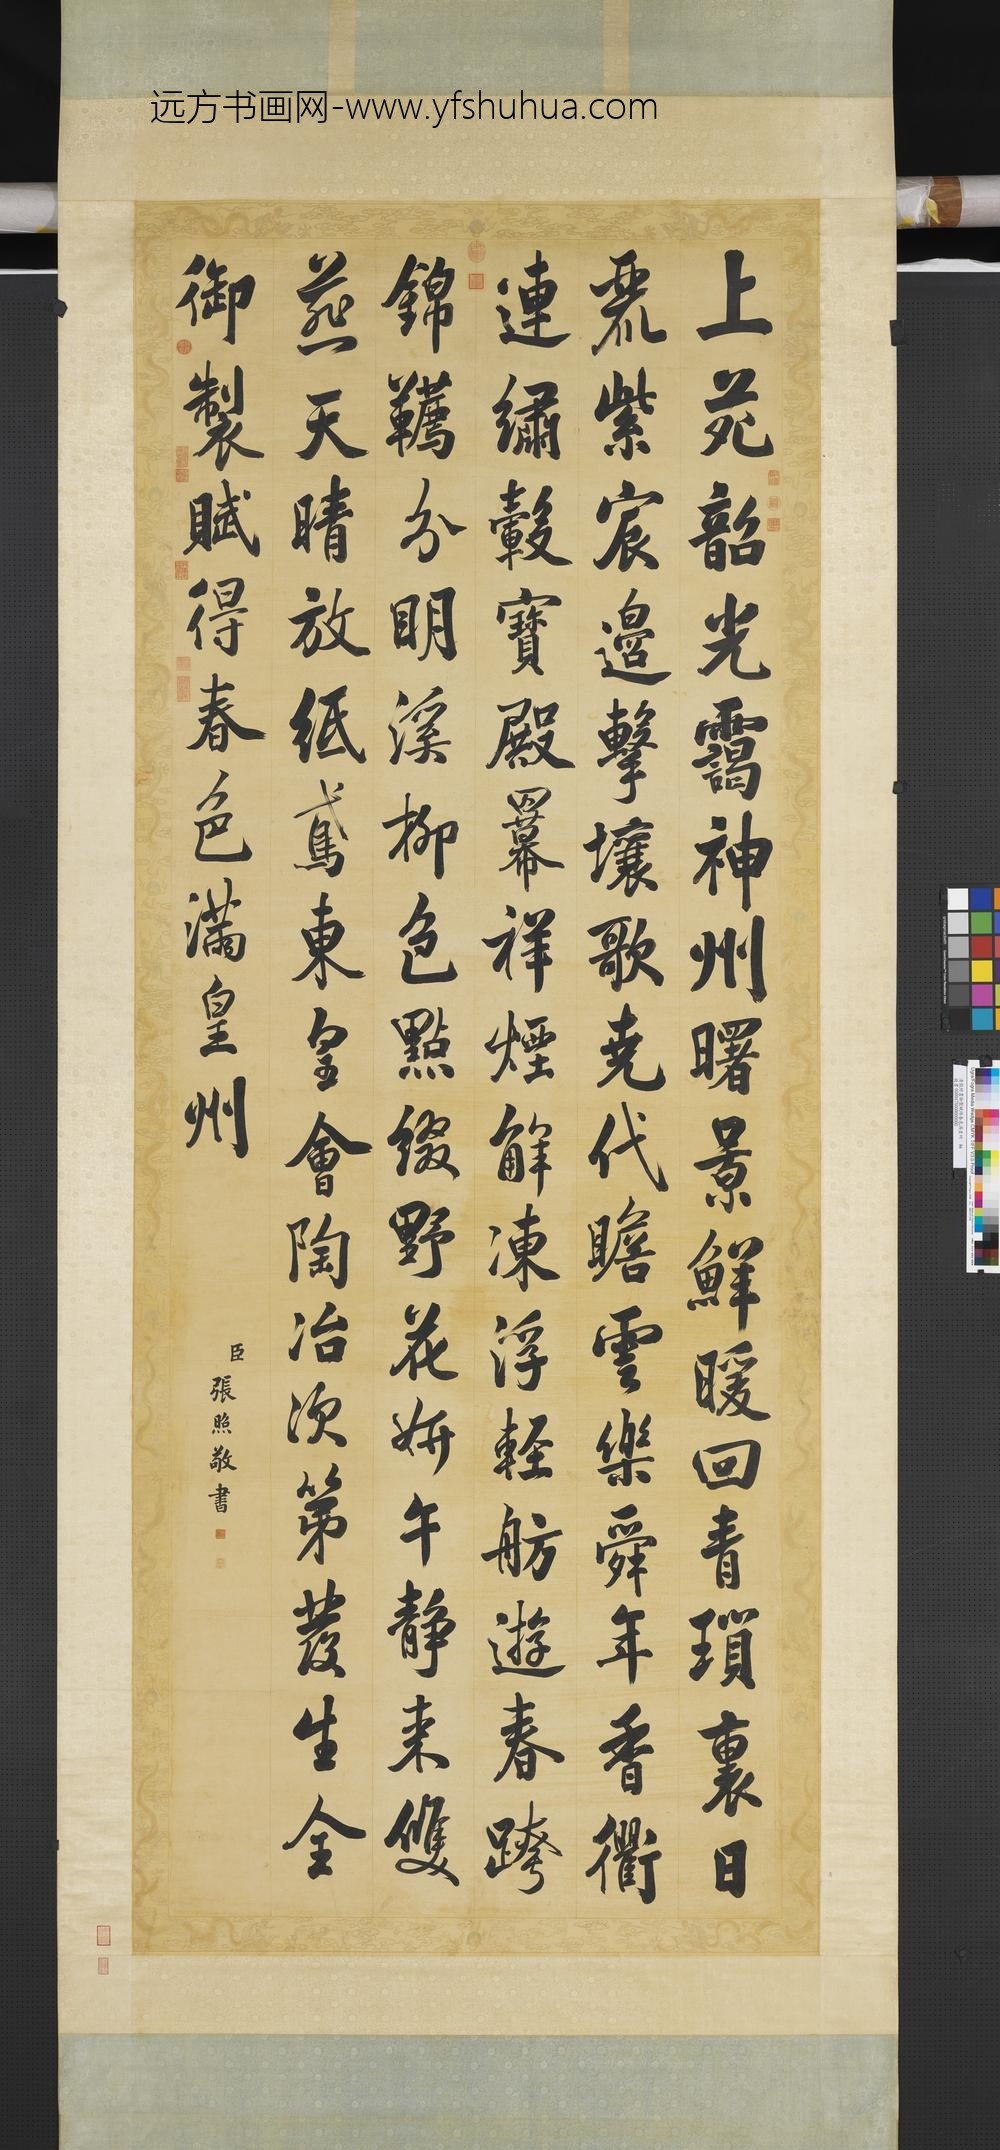 远方书画网-www.yfshuhua.com
上苑韶光靄神州曙景鮮暖回青瑣裏日
麗紫宸邊擊壤歌堯代瞻雲樂舜年香衢
連繡轂寶殿羃祥煙解凍浮輕舫遊春跨
錦韉分明溪柳色點綴野花妍午靜来雙
燕天晴放紙鳶東皇會陶冶次第發生全
御製賦得春色滿皇州
臣張照敬書